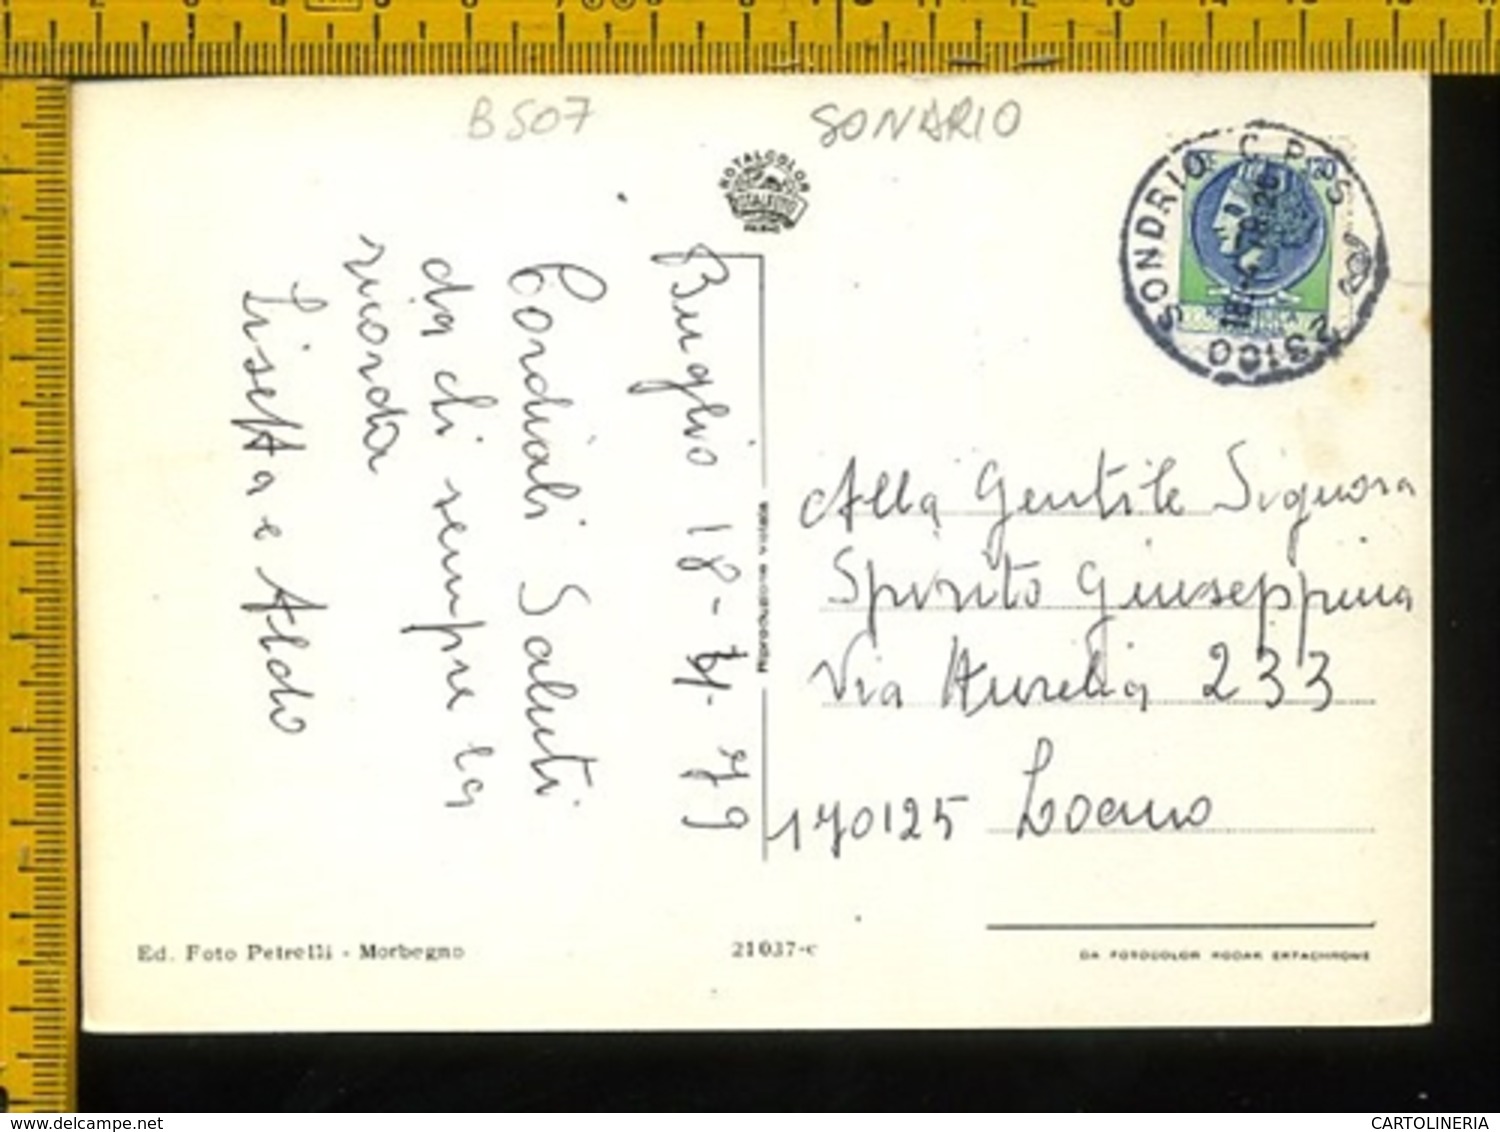 B507
SONARIO
ROTALCOLOR
SONDRIO C.P.
23100
120
Buglio 18-4-79
Cordiali Saluti
da chi sempre la
ricorda
Lisetta e Aldo
Riproduzione vietata
Alla Gentile Signora
Spirito Giuseppina
Via Aurelia 233
170125 Loano
Ed. Foto Petrelli - Morbegno
21037-c
DA FOTOCOLOR KODAK EKTACHROME
www.delcampe.net
CARTOLINERIA